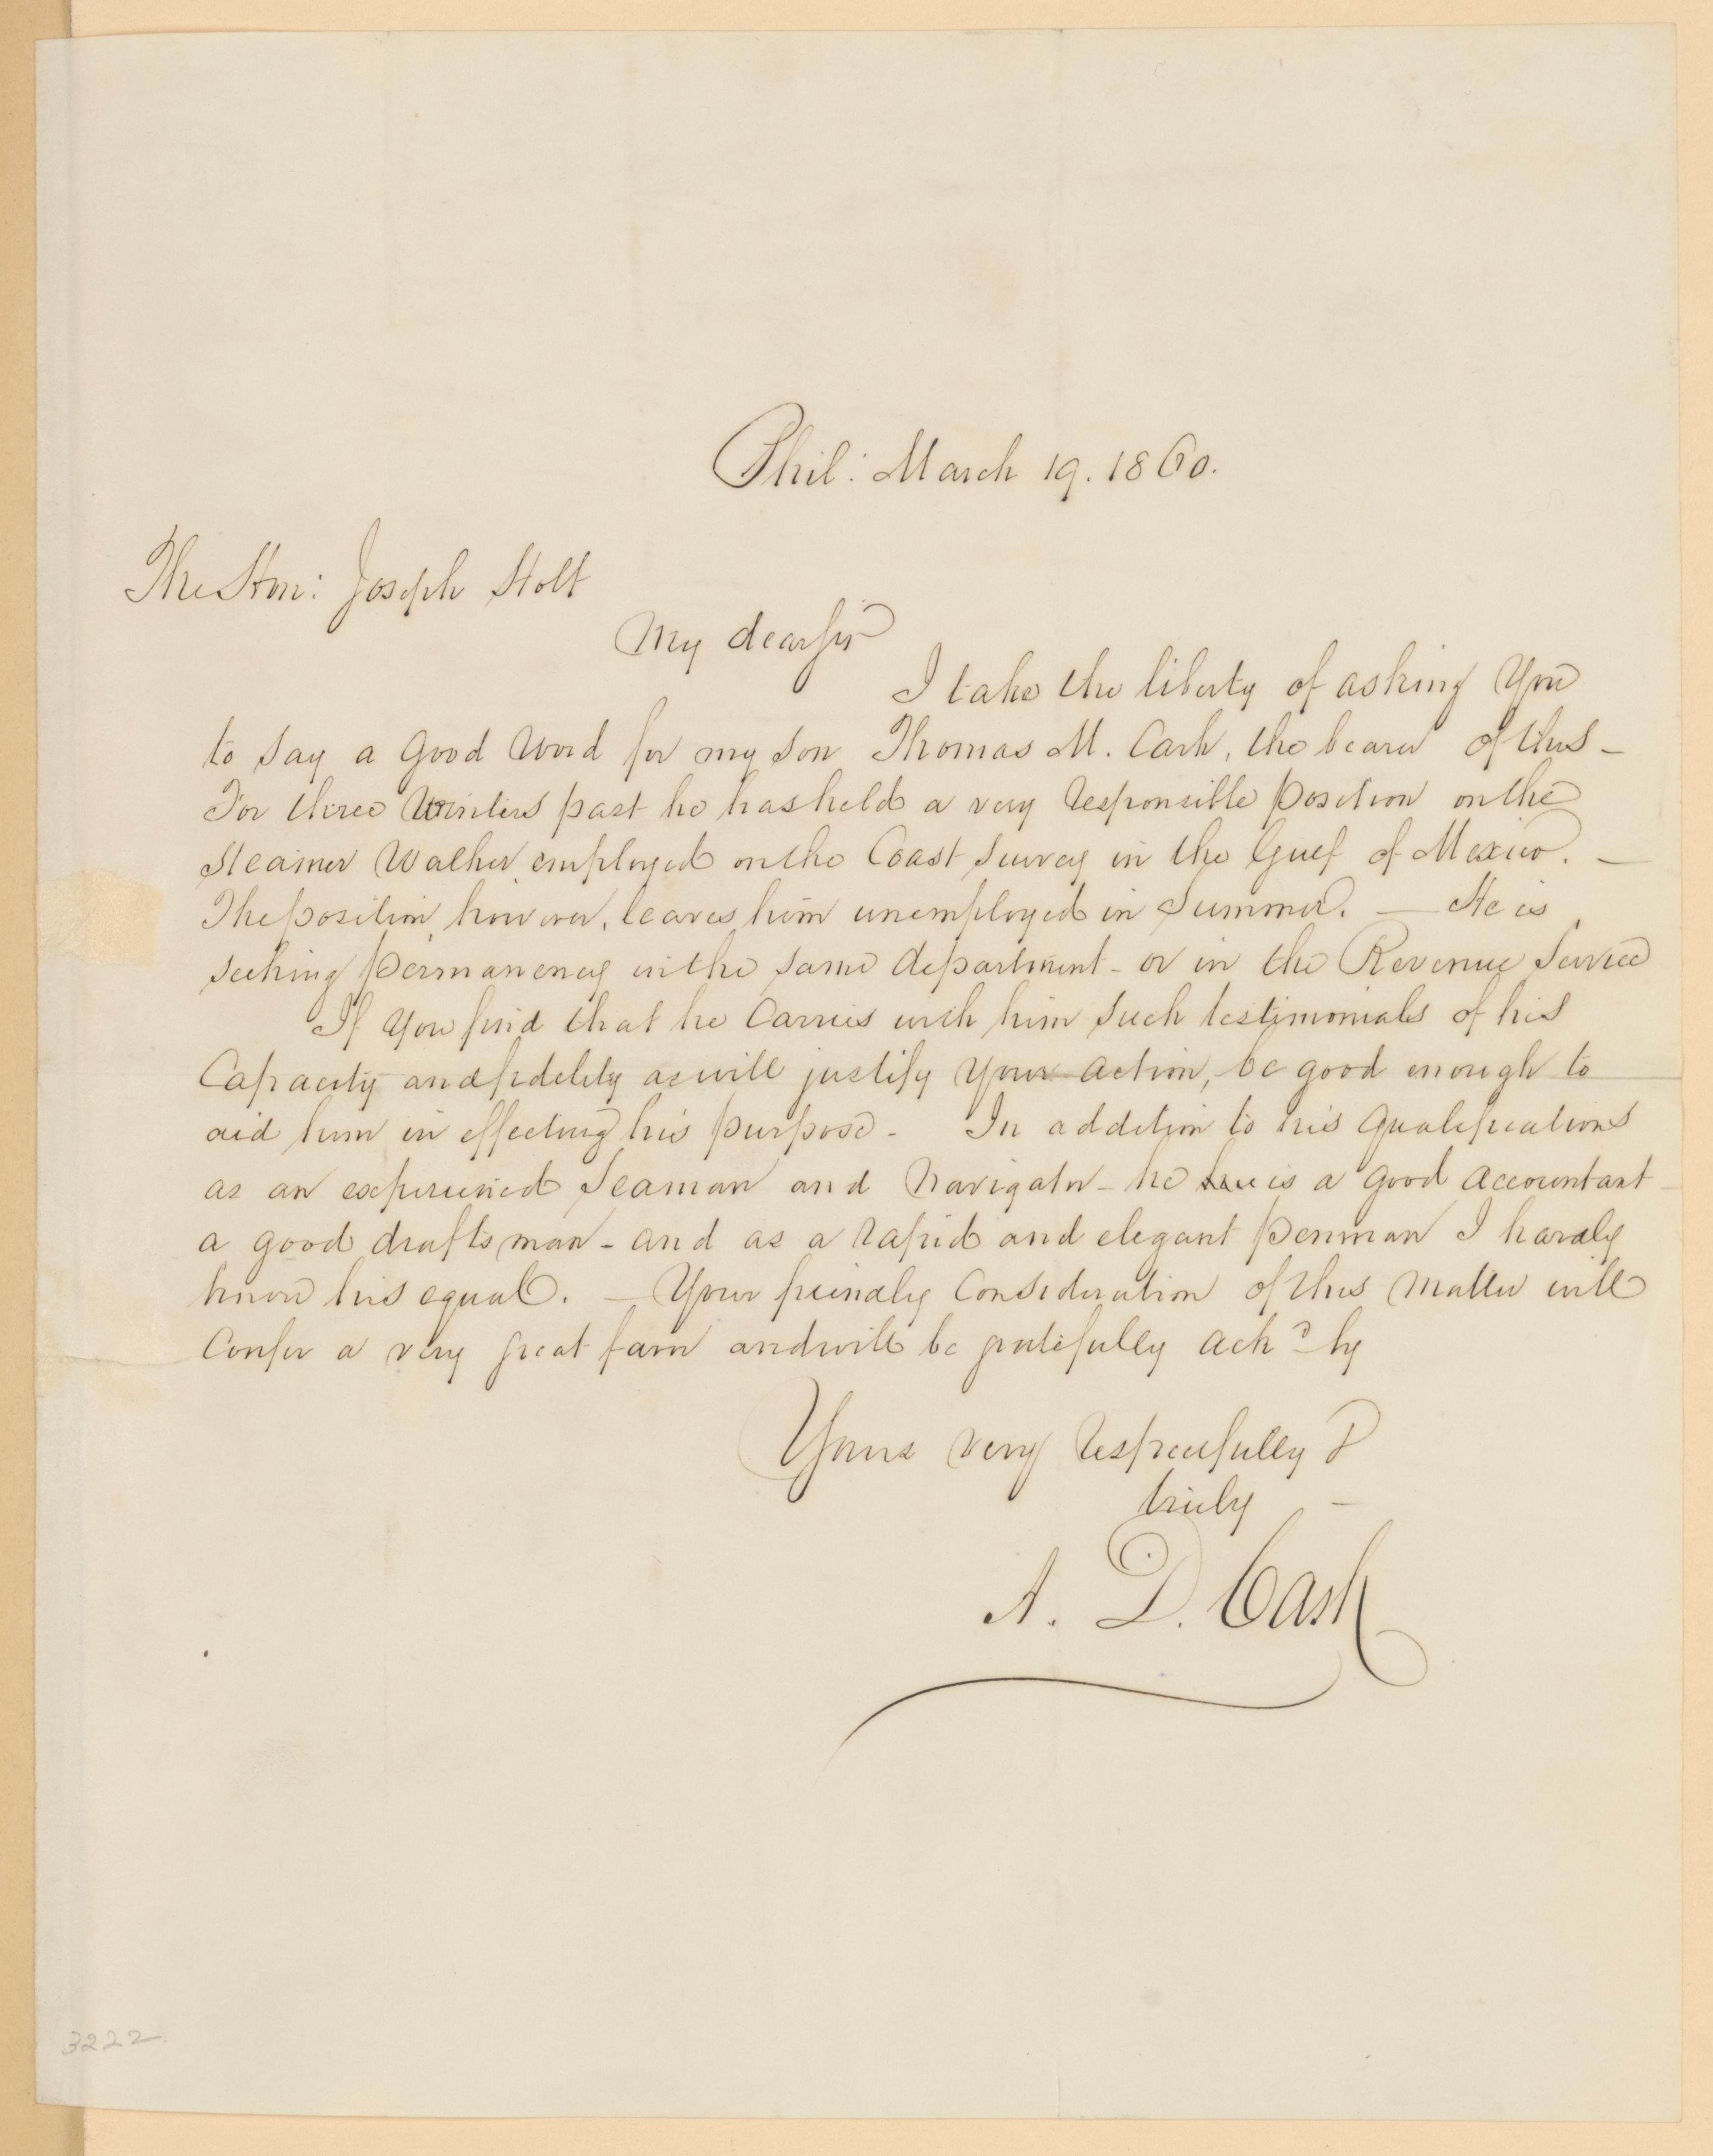 Phil: March 19. 1860.
The Hon: Joseph Holt
My dear sir
I take the liberty of asking You
to say a Good Word for my son Thomas M. Cash, the bearer of this –
For three Winters past he has held a very responsible position on the
Steamer Walker employed on the Coast survey in the Gulf of Mexico. –
The position, however, leaves him unemployed in Summer. – He is
seeking permanency in the same department – or in the Revenue Service
If You find that he Carries with him such testimonials of his
Capacity and fidelity as will justify Your action, be good enough to
aid him in effecting his purpose – In addition to his qualifications
as an experienced Seaman and Navigator – he is a good accountant –
a good draftsman – and as a rapid and elegant penman I hardly
know his equal. – Your friendly Consideration of this matter will
Confer a very great favor and will be gratefully ackd by
Yours very respectfully &
truly –
A. D. Cash
3222